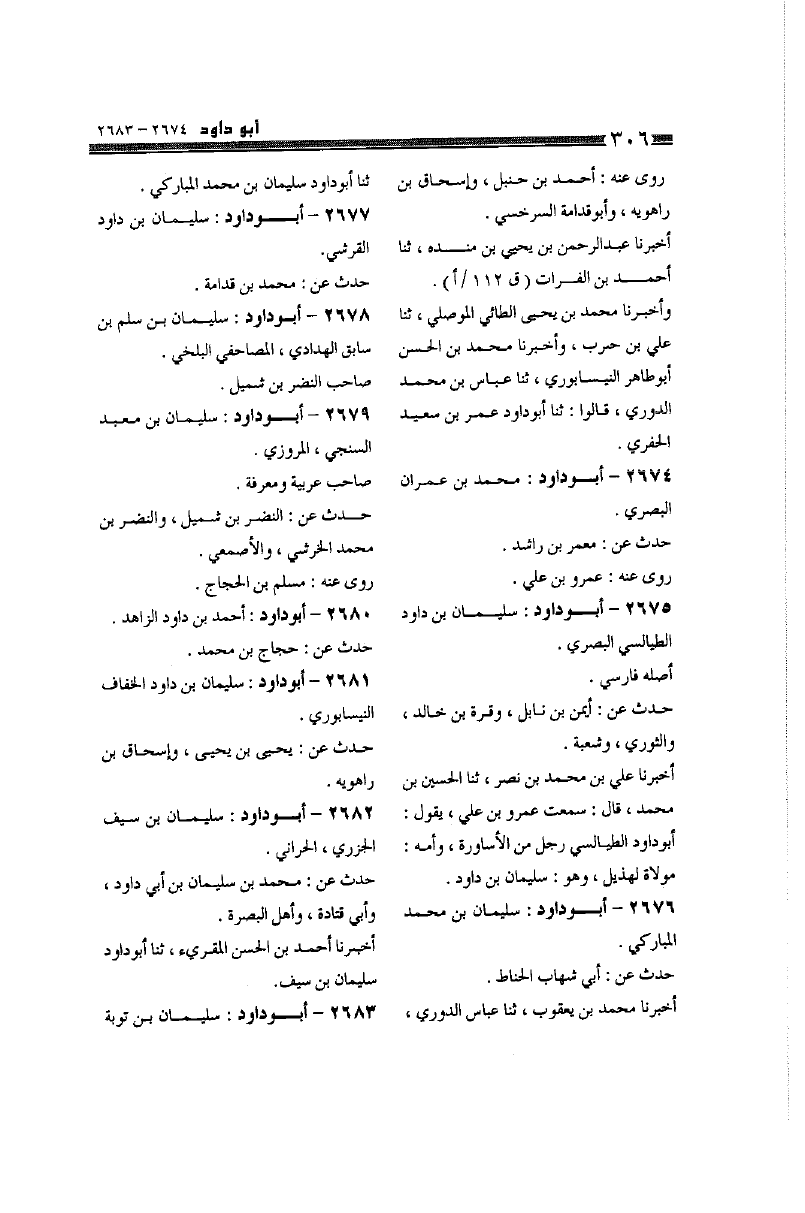 ٣٠٦
أبو داود ٢٦٧٤ – ٢٦٨٣
روى عنه : أحمد بن حنبل ، وإسحاق بن
راهويه ، وأبوقدامة السرخسي .
أخبرنا عبدالرحمن بن يحيي بن منده ، ثنا
أحمد بن الفرات ( ق ١١٢ /أ ) .
وأخبرنا محمد بن يحيى الطائي الموصلي ، ثنا
علي بن حرب ، وأخبرنا محمد بن الحسن
أبوطاهر النيسابوري ، ثنا عباس بن محمد
الدوري ، قالوا : ثنا أبوداود عمر بن سعيد
الحفري .
٢٦٧٤ – أبوداود : محمد بن عمران
البصري .
حدث عن : معمر بن راشد .
روى عنه : عمرو بن علي .
٢٦٧٥ – أبوداود : سليمان بن داود
الطيالسي البصري .
أصله فارسي .
حدث عن : أيمن بن نابل ، وقرة بن خالد ،
والثوري ، وشعبة .
أخبرنا علي بن محمد بن نصر ، ثنا الحسين بن
محمد ، قال : سمعت عمرو بن علي ، يقول :
أبوداود الطيالسي رجل من الأساورة ، وأمه :
مولاة لهذيل ، وهو : سليمان بن داود .
٢٦٧٦ – أبوداود : سليمان بن محمد
المباركي .
حدث عن : أبي شهاب الحناط .
أخبرنا محمد بن يعقوب ، ثنا عباس الدوري ،
ثنا أبوداود سليمان بن محمد المباركي .
٢٦٧٧ – أبوداود : سليمان بن داود
القرشي.
حدث عن : محمد بن قدامة .
٢٦٧٨ – أبوداود : سليمان بن سلم بن
سابق الهدادي ، المصاحفي البلخي .
صاحب النضر بن شميل .
٢٦٧٩ – أبوداود : سليمان بن معبد
السنجي ، المروزي .
صاحب عربية ومعرفة .
حدث عن : النضر بن شميل ، والنضر بن
محمد الخرشي ، والأصمعي .
روى عنه : مسلم بن الحجاج .
٢٦٨٠ – أبوداود : أحمد بن داود الزاهد .
حدث عن : حجاج بن محمد .
٢٦٨١ – أبوداود : سليمان بن داود الخفاف
النيسابوري .
حدث عن : يحيى بن يحيى ، وإسحاق بن
راهويه .
٢٦٨٢ – أبوداود : سليمان بن سيف
الجزري ، الحراني .
حدث عن : محمد بن سليمان بن أبي داود ،
وأبي قتادة ، وأهل البصرة .
أخبرنا أحمد بن الحسن المقريء ، ثنا أبوداود
سليمان بن سيف.
٢٦٨٣ – أبوداود : سليمان بن توبة